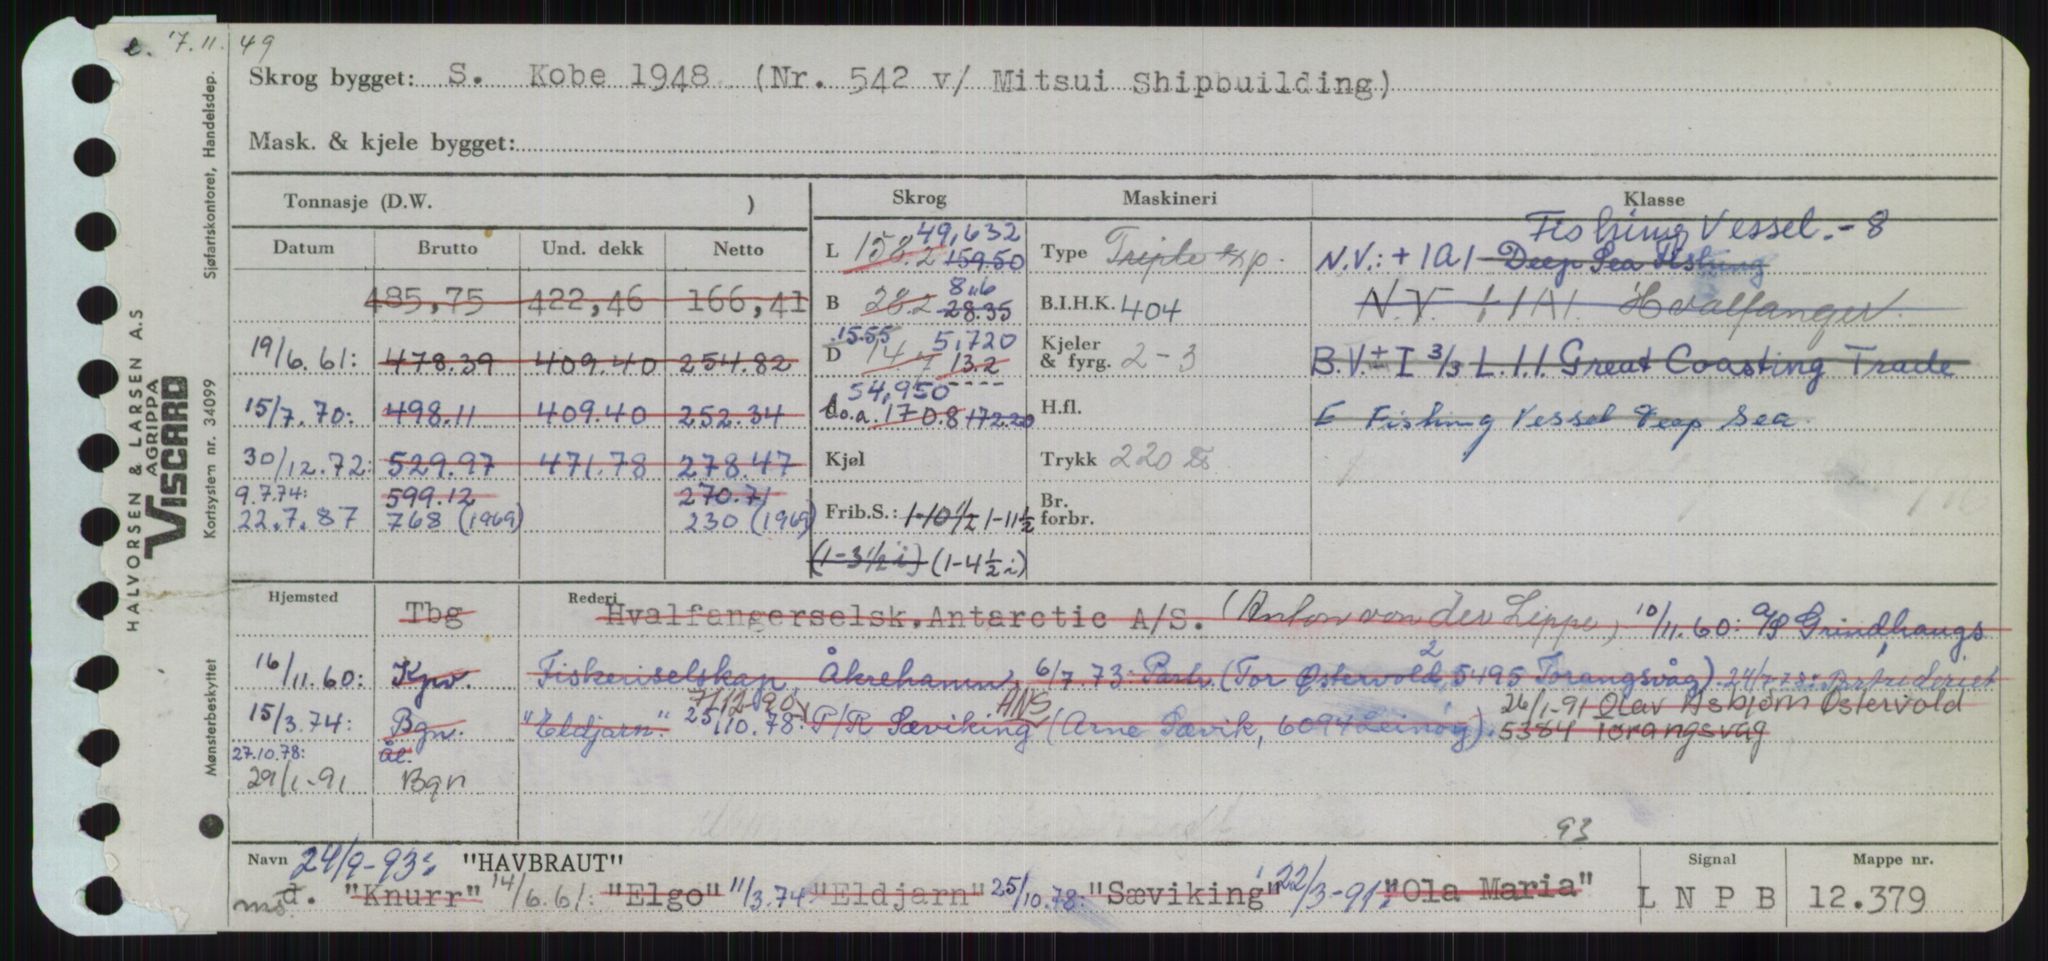 e. 7.11.49
Skrog bygget: S. Kobe 1948 (Nr. 542 v/ Mitsui Shipbuilding)
Mask. & kjele bygget:
Tonnasje (D.W. )
Skrog
Maskineri
Klasse
Datum
Brutto
Und. dekk
Netto
485,75 422,46 166,41
19/6.61: 478.39 409.40 254.82
15/7.70: 498.11 409.40 252.34
30/12.72: 529.97 471.78 278.47
9.7.74: 599.12 270.71
22.7.87 768 (1969) 230 (1969)
49,632
L 158.2 159.50
8,6
B 28.2 28.35
15.55 5,720
D 14.7 13.2
54,950
L.o.a. 170.8 172.20
Kjøl
Frib.S.: 1-10 1/2 1-11 1/2
(1-3 1/2 i) (1-4 1/2 i)
Type Triple exp.
B.I.H.K. 404
Kjeler & fyrg. 2-3
H.fl.
Trykk 220
Br. forbr.
Fishing Vessel.-8
N.V.: + 1A1 Deep Sea Fishing
N.V. + 1A1. Hvalfanger.
B.V. ± I 3/3 L.1.1. Great Coasting Trade
E Fishing Vessel Deep Sea.
Hjemsted
Tbg
Rederi
Hvalfangerselsk. Antarctic A/S. (Anton von der Lippe) 10/11.60: A/S Grindhaugs
16/11.60: Kpv. Fiskeriselskap, Åkrehamn, 6/7.73: Partr. (Tor Østervold, 5495 Torangsvåg) 24/7.73: Partrederiet
15/3.74: Bgn. "Eldjarn". 25/10.78: P/R Sæviking ANS (Arne Sævik, 6094 Leinøy). 26/1-91 Olav Asbjørn Østervold
7/12-90
5384 Torangsvåg
27.10.78: Ål.
29/1-91 Bgn
93
Navn 24/9-93: "HAVBRAUT"
ms d. "Knurr" 14/6.61: "Elgo" 11/3.74 "Eldjarn" 25/10.78: "Sæviking" 22/3-91: "Ola Maria"
Signal
L N P B
Mappe nr.
12.379
HALVORSEN & LARSEN A.S
AGRIPPA
VISCARD
Sjøfartskontoret, Handelsdep.
Kortsystem nr. 34099
Mønsterbeskyttet